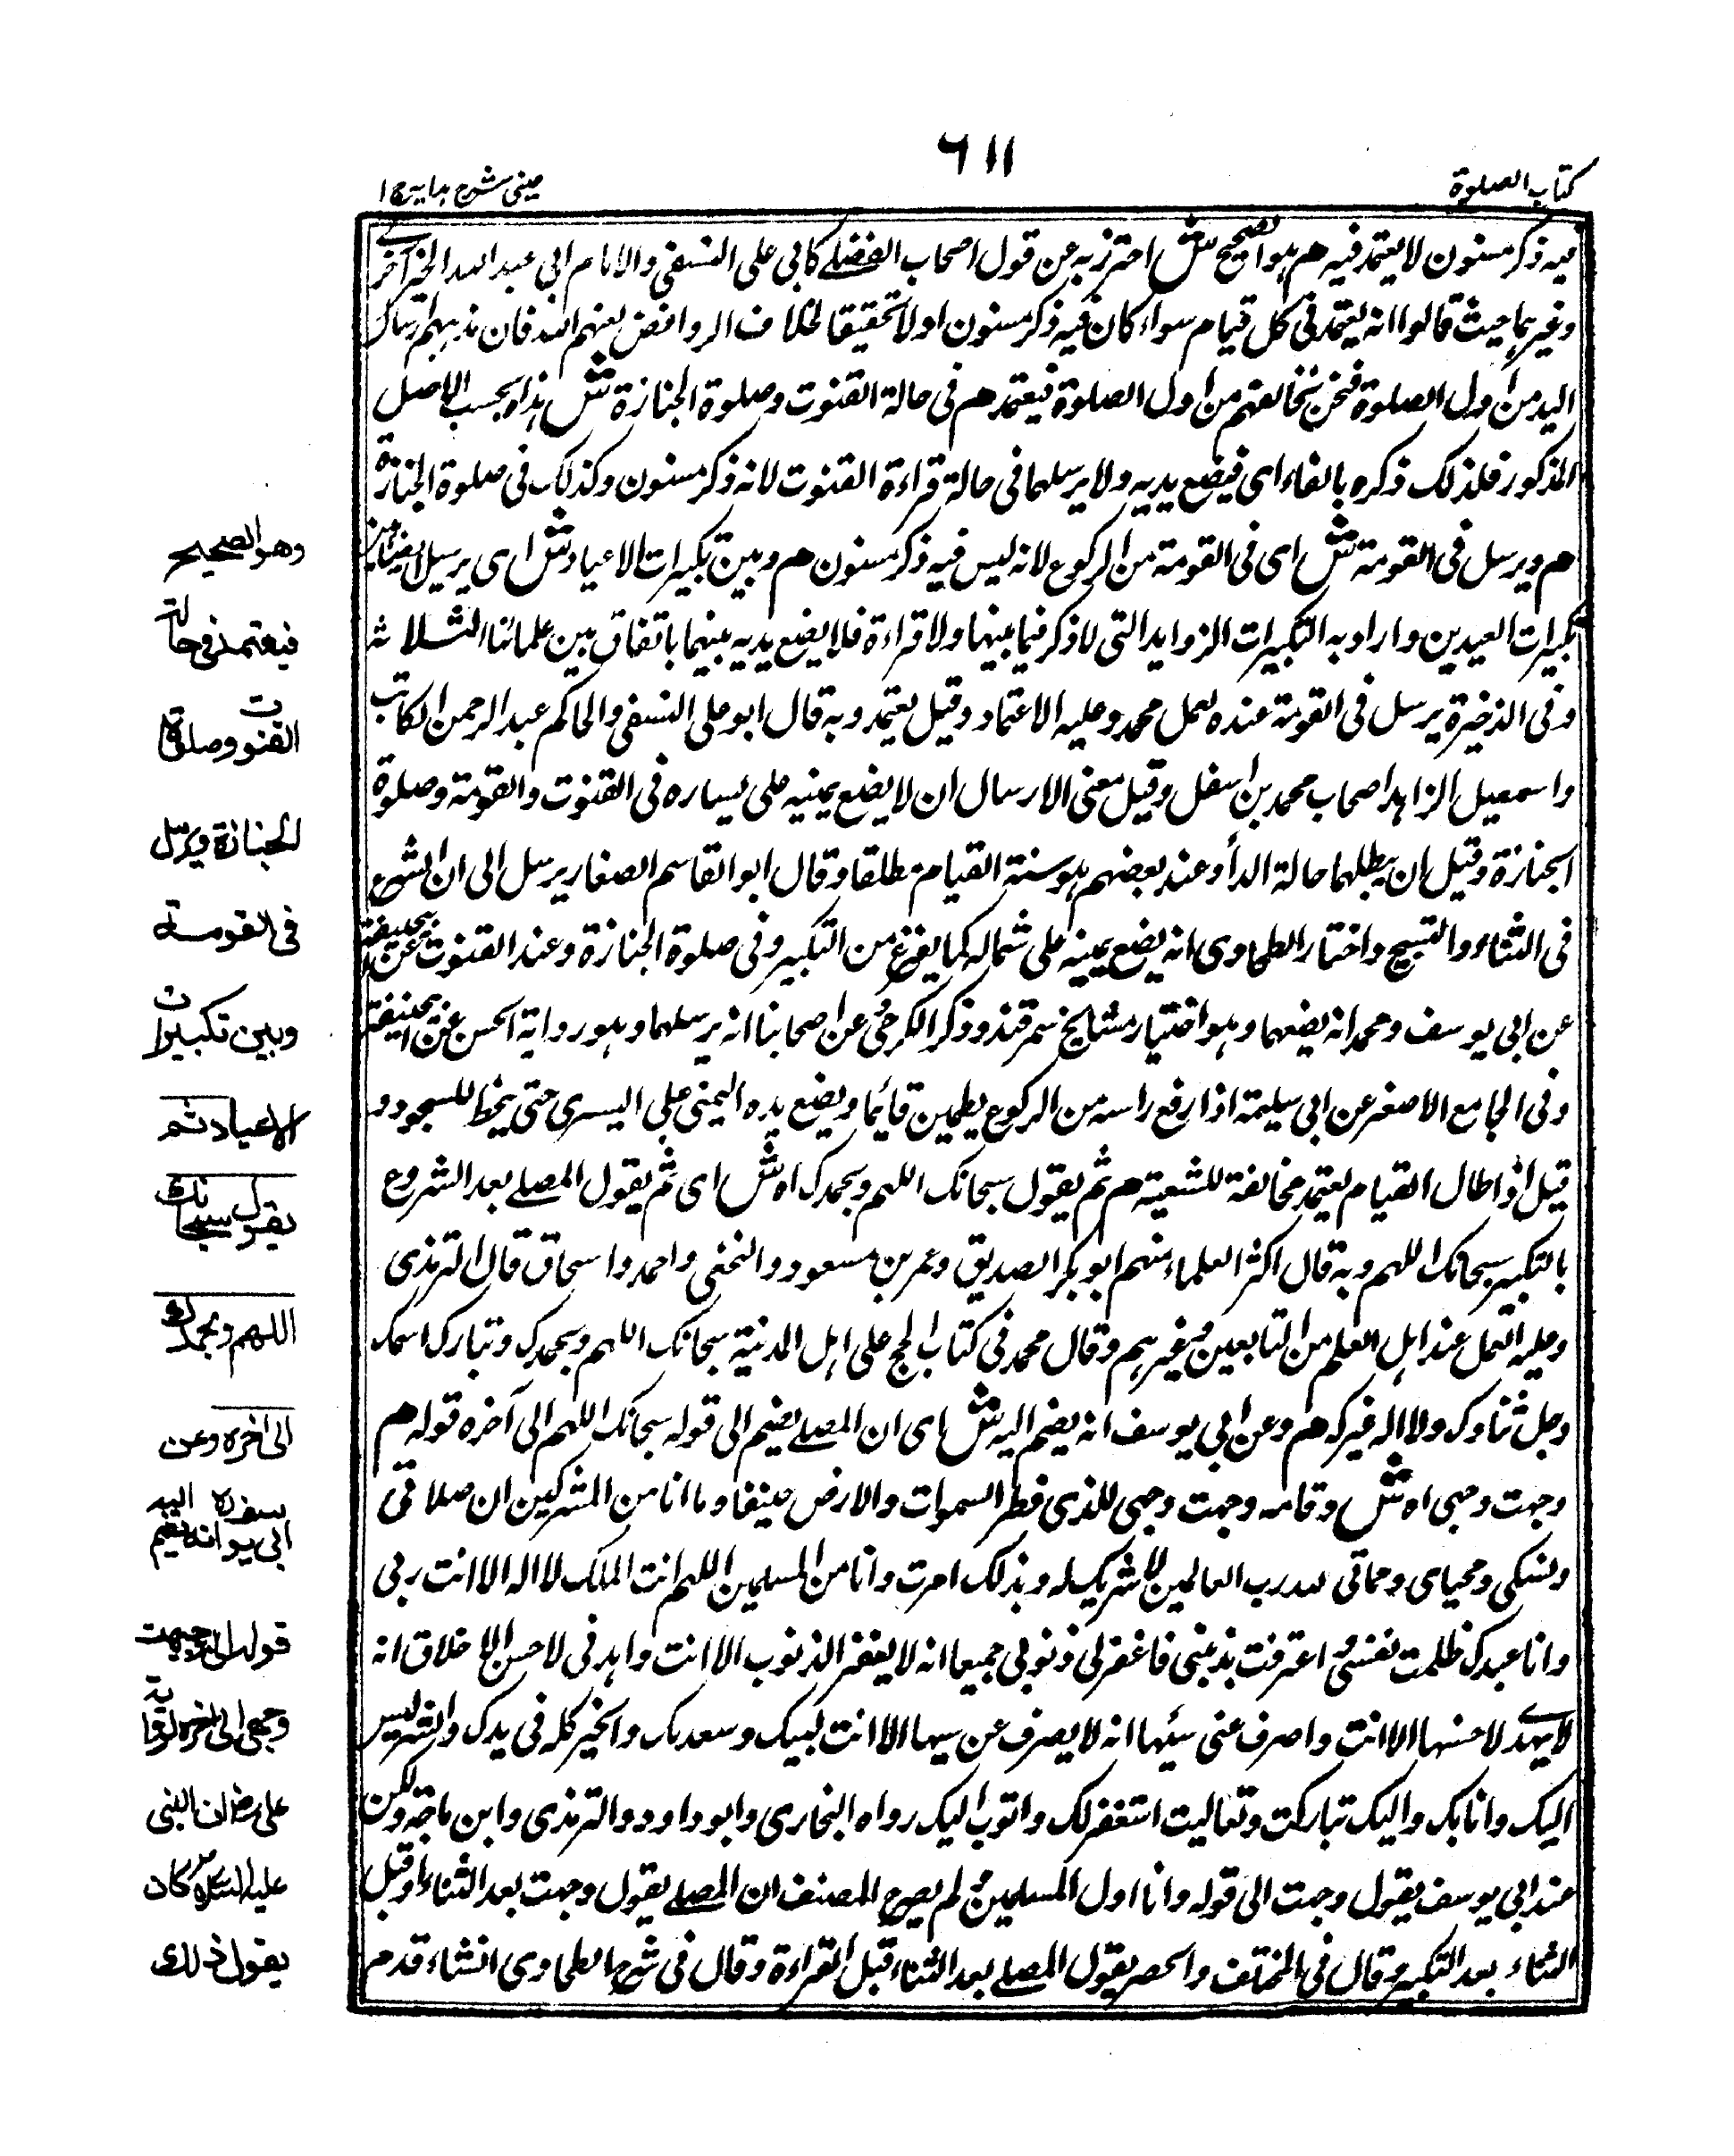 ٦١١
كتاب الصلوة
عينى شرح هدايه ج ١
فيه ذكر مسنون لا يعتمد فيه هم هو الصحيح ش احترز به عن قول اصحاب الفضلى كابى على النسفى والامام ابى عبد الله
وغيرهما حيث قالوا انه يعتمد فى كل قيام سواء كان فيه ذكر مسنون اولا تحقيقا لخلاف الروافض لعنهم الله فان مذهبهم ارسال
اليد من اول الصلوة فنحن نخالفهم من اول الصلوة فيعتمد هم فى حالة القنوت وصلوة الجنازة ش هذا بحسب الاصل
المذكور فلذلك ذكره بالفاء اى فيضع يديه ولا يرسلهما فى حالة قراءة القنوت لانه ذكر مسنون وكذلك فى صلوة الجنازة
هم ويرسل فى القومة ش اى فى القومة من الركوع لانه ليس فيه ذكر مسنون هم وبين تكبيرات الاعياد ش اى يرسل ايضا بين
تكبيرات العيدين واراد به التكبيرات الزوايد التى لا ذكر فيما بينها ولا قراءة فلا يضع يديه بينهما باتفاق بين علمائنا الثلاثة
وفى الذخيرة يرسل فى القومة عنده لعمل محمد وعليه الاعتماد وقيل يعتمد وبه قال ابو على النسفى والحاكم عبد الرحمن الكاتب
واسمعيل الزاهد اصحاب محمد بن وقيل معنى الارسال ان لا يضع يمينه على يساره فى القنوت والقومة وصلوة
الجنازة وقيل ان يبطلهما حالة وعند بعضهم هو سنة القيام مطلقا وقال ابو القاسم الصفار يرسل الى ان الشرع
فى الثناء والتسبيح واختار الطحاوى انه يضع يمينه على شماله كما يفرغ من التكبير وفى صلوة الجنازة وعند القنوت
عن ابى يوسف ومحمد انه يضعهما وهو اختيار مشايخ سمرقند وذكر الكرخى عن اصحابنا انه يرسلهما وهو رواية الحسن عن ابى حنيفة
وفى الجامع الاصغر عن ابى سليمة اذا رفع راسه من الركوع يطمين قائما ويضع يده اليمنى على اليسرى حتى ينحط للسجود و
قيل اذا طال القيام يعتمد مخالفة للشيعة هم ثم يقول سبحانك اللهم وبحمدك اه ش اى ثم يقول المصلے بعد الشروع
بالتكبير سبحانك اللهم وبه قال اكثر العلماء منهم ابو بكر الصديق وعمر بن مسعود والنخعى واحمد واسحاق قال الترمذى
وعليه العمل عند اهل العلم من التابعين وغيرهم وقال محمد فى كتاب الحج على اهل المدينة سبحانك اللهم وبحمدك وتبارك اسمك
وجل ثناوك ولا اله غيرك هم وعن ابى يوسف انه يضم اليه ش اى ان المصلے يضيم الى قوله سبحانك اللهم الى آخره قوله هم
وجهت وجهى اه ش وتمامه وجهت وجهى للذى فطر السموات والارض حنيفا وما انا من المشركين ان صلاتى
ونسكى ومحياى ومماتى لله رب العالمين لا شريك له وبذلك امرت وانا من المسلمين اللهم انت الملك لا اله الا انت ربى
وانا عبدك ظلمت نفسى و اعترفت بذنبى فاغفر لى ذنوبى جميعا انه لا يغفر الذنوب الا انت واهدنى لاحسن الاخلاق انه
لا يهدے لاحسنها الا انت واصرف عنى سيئها انه لا يصرف عن سيها الا انت لبيك وسعديك والخير كله فى يدك والشر ليس
اليك وانا بك واليك تباركت وتعاليت استغفرلك واتوب اليك رواه البخارى وابو داود والترمذى وابن ماجة ولكن
عند ابى يوسف يقول وجهت الى قوله وانا اول المسلمين و لم يصرح المصنف ان المصلے يقول وجهت بعد الثناء او قبل
الثناء بعد التكبير وقال فى المختلف والحصر يقول المصلے بعد الثناء قبل القراءة وقال فى شرح الطحاوى انشاء قدم
وهو الصحيح
فيعتمد فى حالة
القنوت وصلوة
الجنازة ويرسل
فى القومة
وبين تكبيرات
الاعياد ثم
يقول سبحانك
اللهم وبحمدك
الى اخره وعن
ابى يوسف انه يضم اليه
قوله انى وجهت
وجهى الى اخره لرواية
على رض ان النبى
عليه السلام كان
يقول ذلك